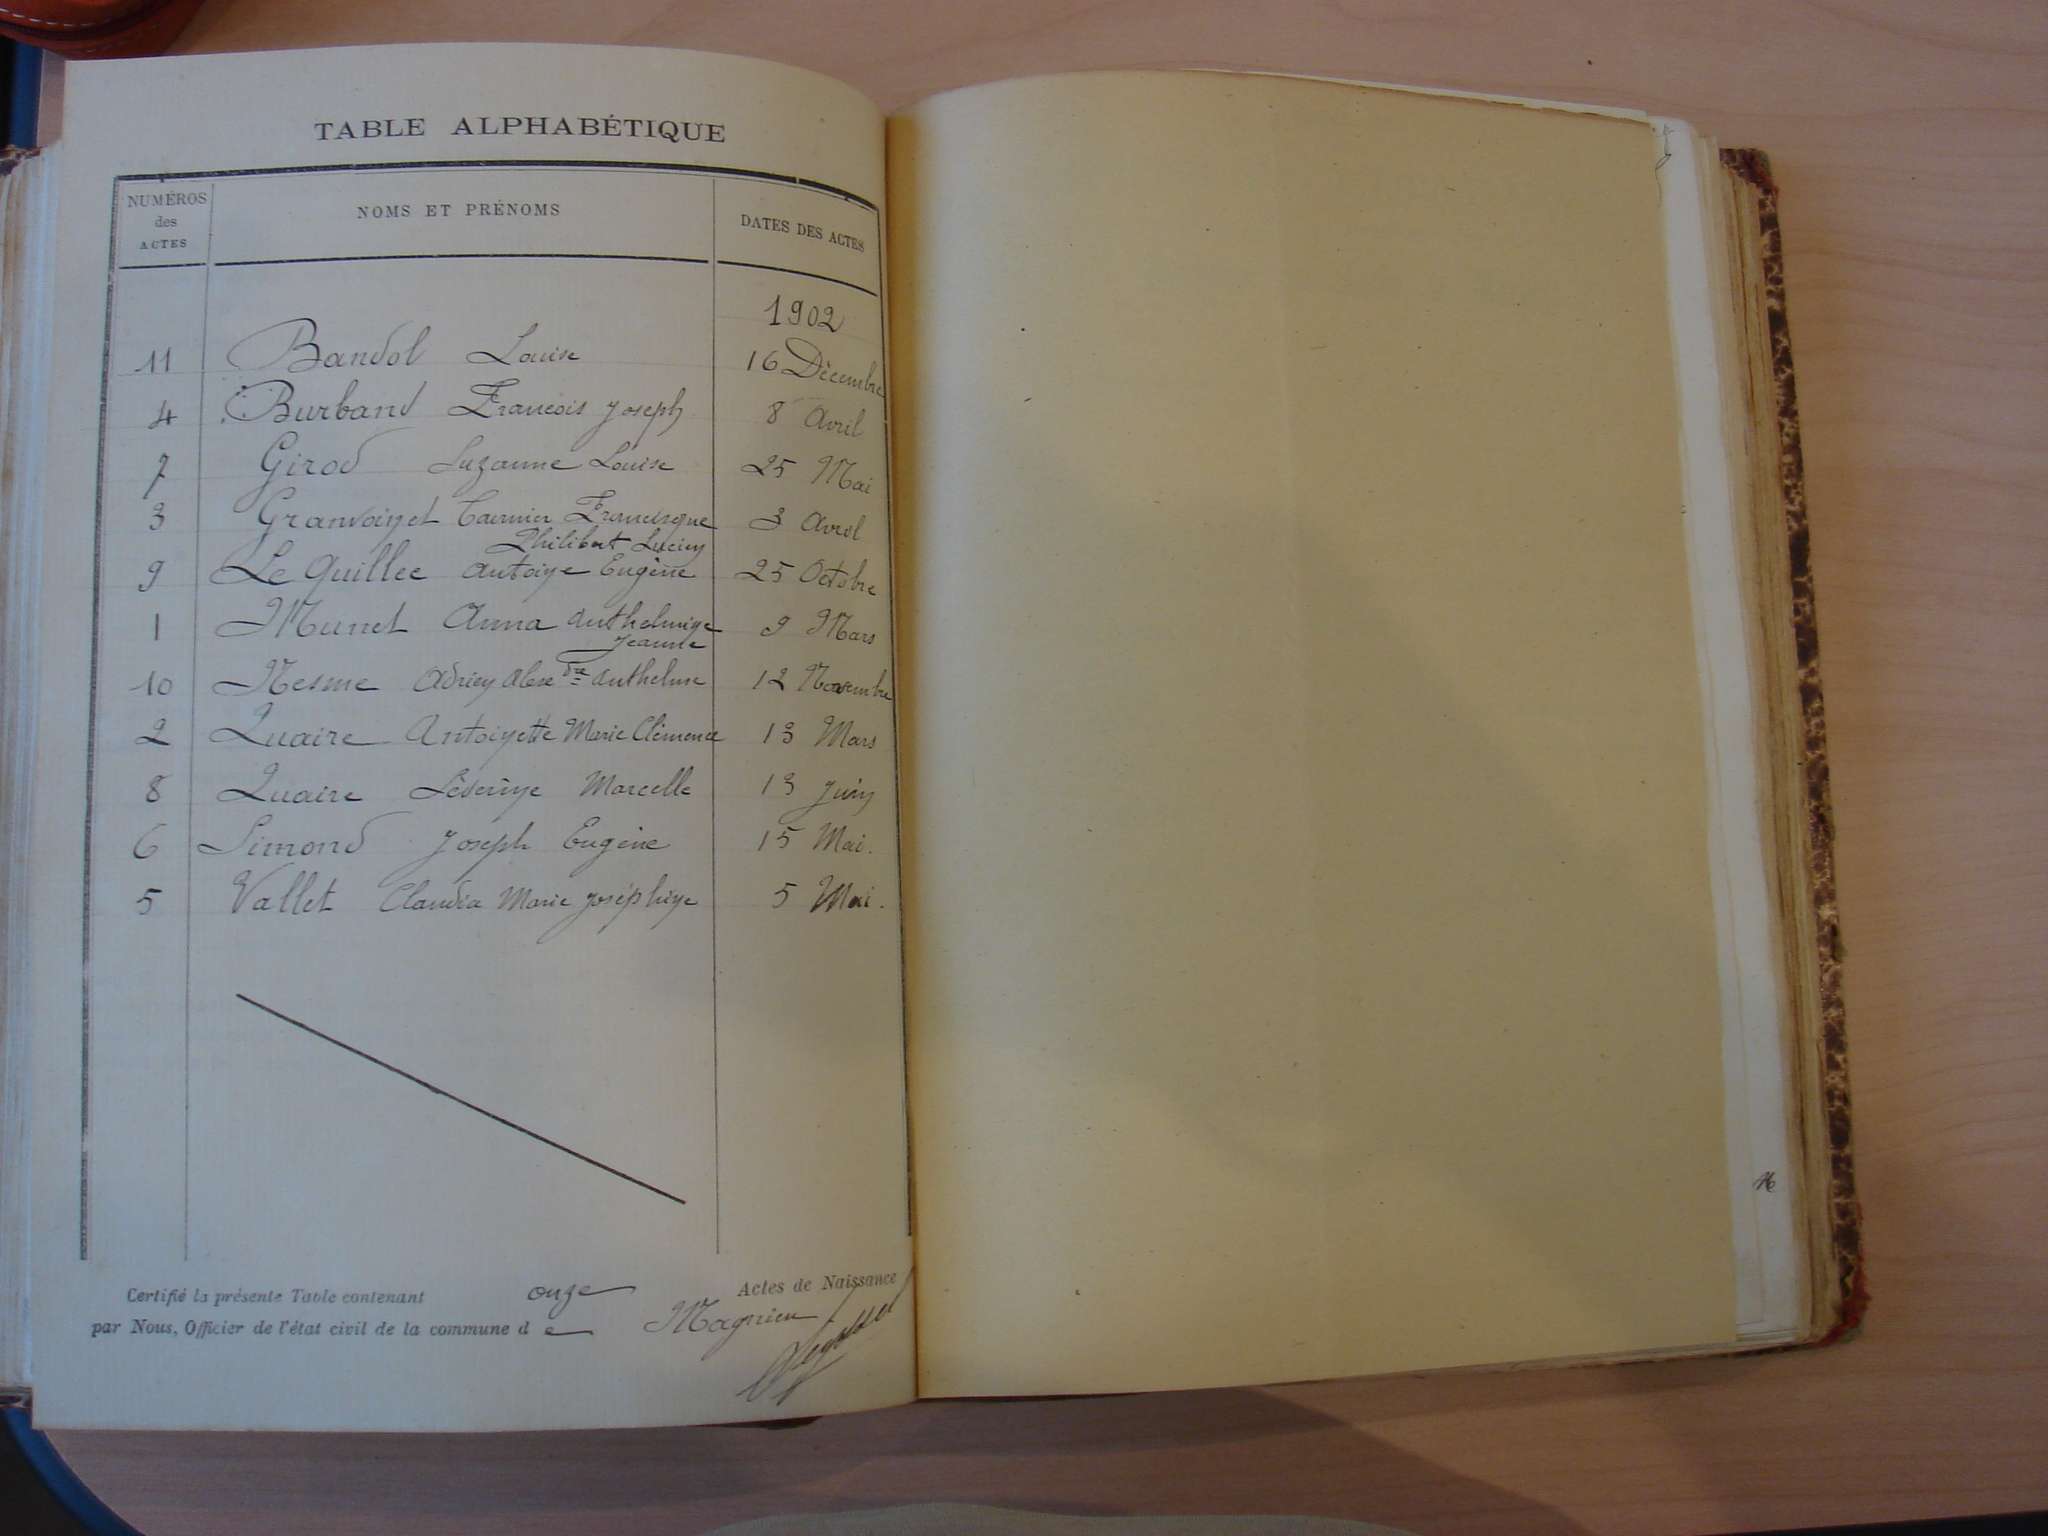 TABLE ALPHABÉTIQUE
NUMÉROS des ACTES NOMS ET PRÉNOMS DATES DES ACTES
1902
11 Bandol Louise 16 Décembre
4 Burband François Joseph 8 Avril
7 Girod Suzanne Louise 25 Mai
3 Granvoinet Francisque 3 Avril
Philibert Lucien
9 Le Quillec Antoine Eugène 25 Octobre
1 Munet Anna Anthelmine 9 Mars
Jeanne
10 Nesme Adrien Alexdre Anthelme 12 Novembre
2 Quaire Antoinette Marie Clémence 13 Mars
8 Quaire Séverine Marcelle 13 Juin
6 Simond Joseph Eugène 15 Mai.
5 Vallet Claudia Marie Joséphine 5 Mai.
Certifié la présente Table contenant onze Actes de Naissance
par Nous, Officier de l'état civil de la commune de Magnieu